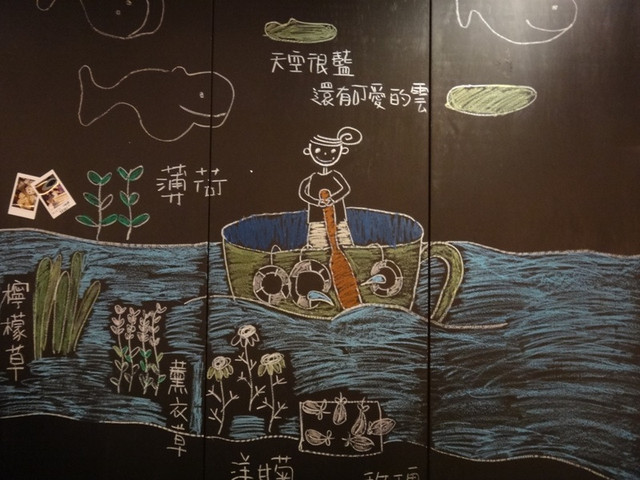 天空很藍
還有可愛的雲
薄荷
檸檬草
薰衣草
洋甘菊